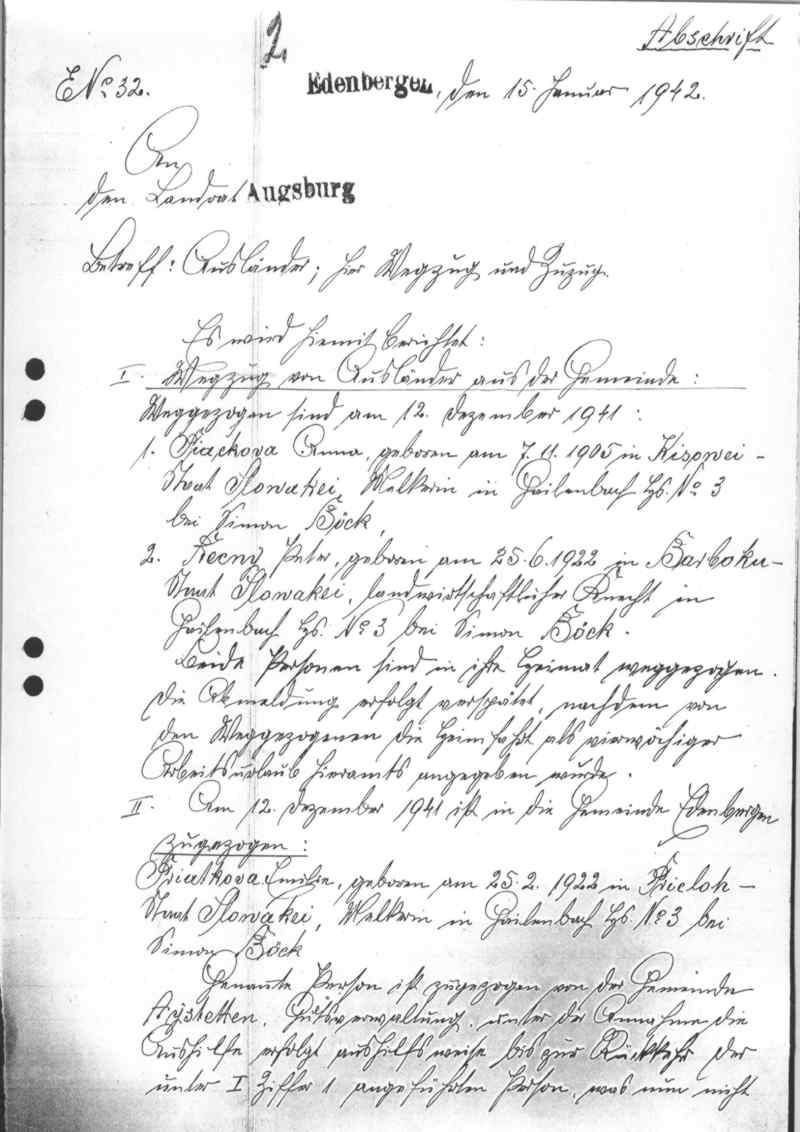 2.
Abschrift
E No. 32.
Edenbergen, den 15. Januar 1942.
An
den Landrat Augsburg
Betreff: Ausländer; hier Wegzug und Zuzug.
Es wird hiemit berichtet:
I. Wegzug von Ausländer aus der Gemeinde:
Weggezogen sind am 12. Dezember 1941:
1. Anna, geboren am 7.11.1905 in Kisowei -
Staat Slowakei, Melkerin in Hailenbach Hs. No 3
bei Simon Böck,
2. Recny Peter, geboren am 25.6.1922 in Barboku -
Staat Slowakei, landwirtschaftlicher Knecht in
Hailenbach Hs. No 3 bei Simon Böck.
Beide Personen sind in ihre Heimat weggezogen.
Die Abmeldung erfolgt verspätet, nachdem von
den Weggezogenen die Heimfahrt als vierwöchiger
Arbeitsurlaub hieramts angegeben wurde.
II. Am 12. Dezember 1941 ist in die Gemeinde Edenbergen
zugezogen:
Emilie, geboren am 25.2.1922 in
Staat Slowakei, Melkerin in Hailenbach Hs. No 3 bei
Simon Böck
Genannte Person ist zugezogen von der Gemeinde
Aystetten, Gutsverwaltung, unter der Annahme die
Aushilfe erfolgt aushilfsweise bis zur Rückkehr der
unter I Ziffer 1 angeführten Person, was nun nicht